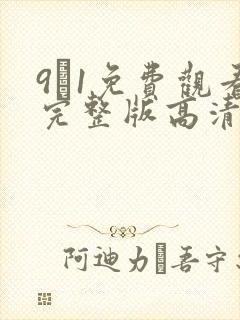 9 1免費觀看
完整版高清
阿迪力 吾守